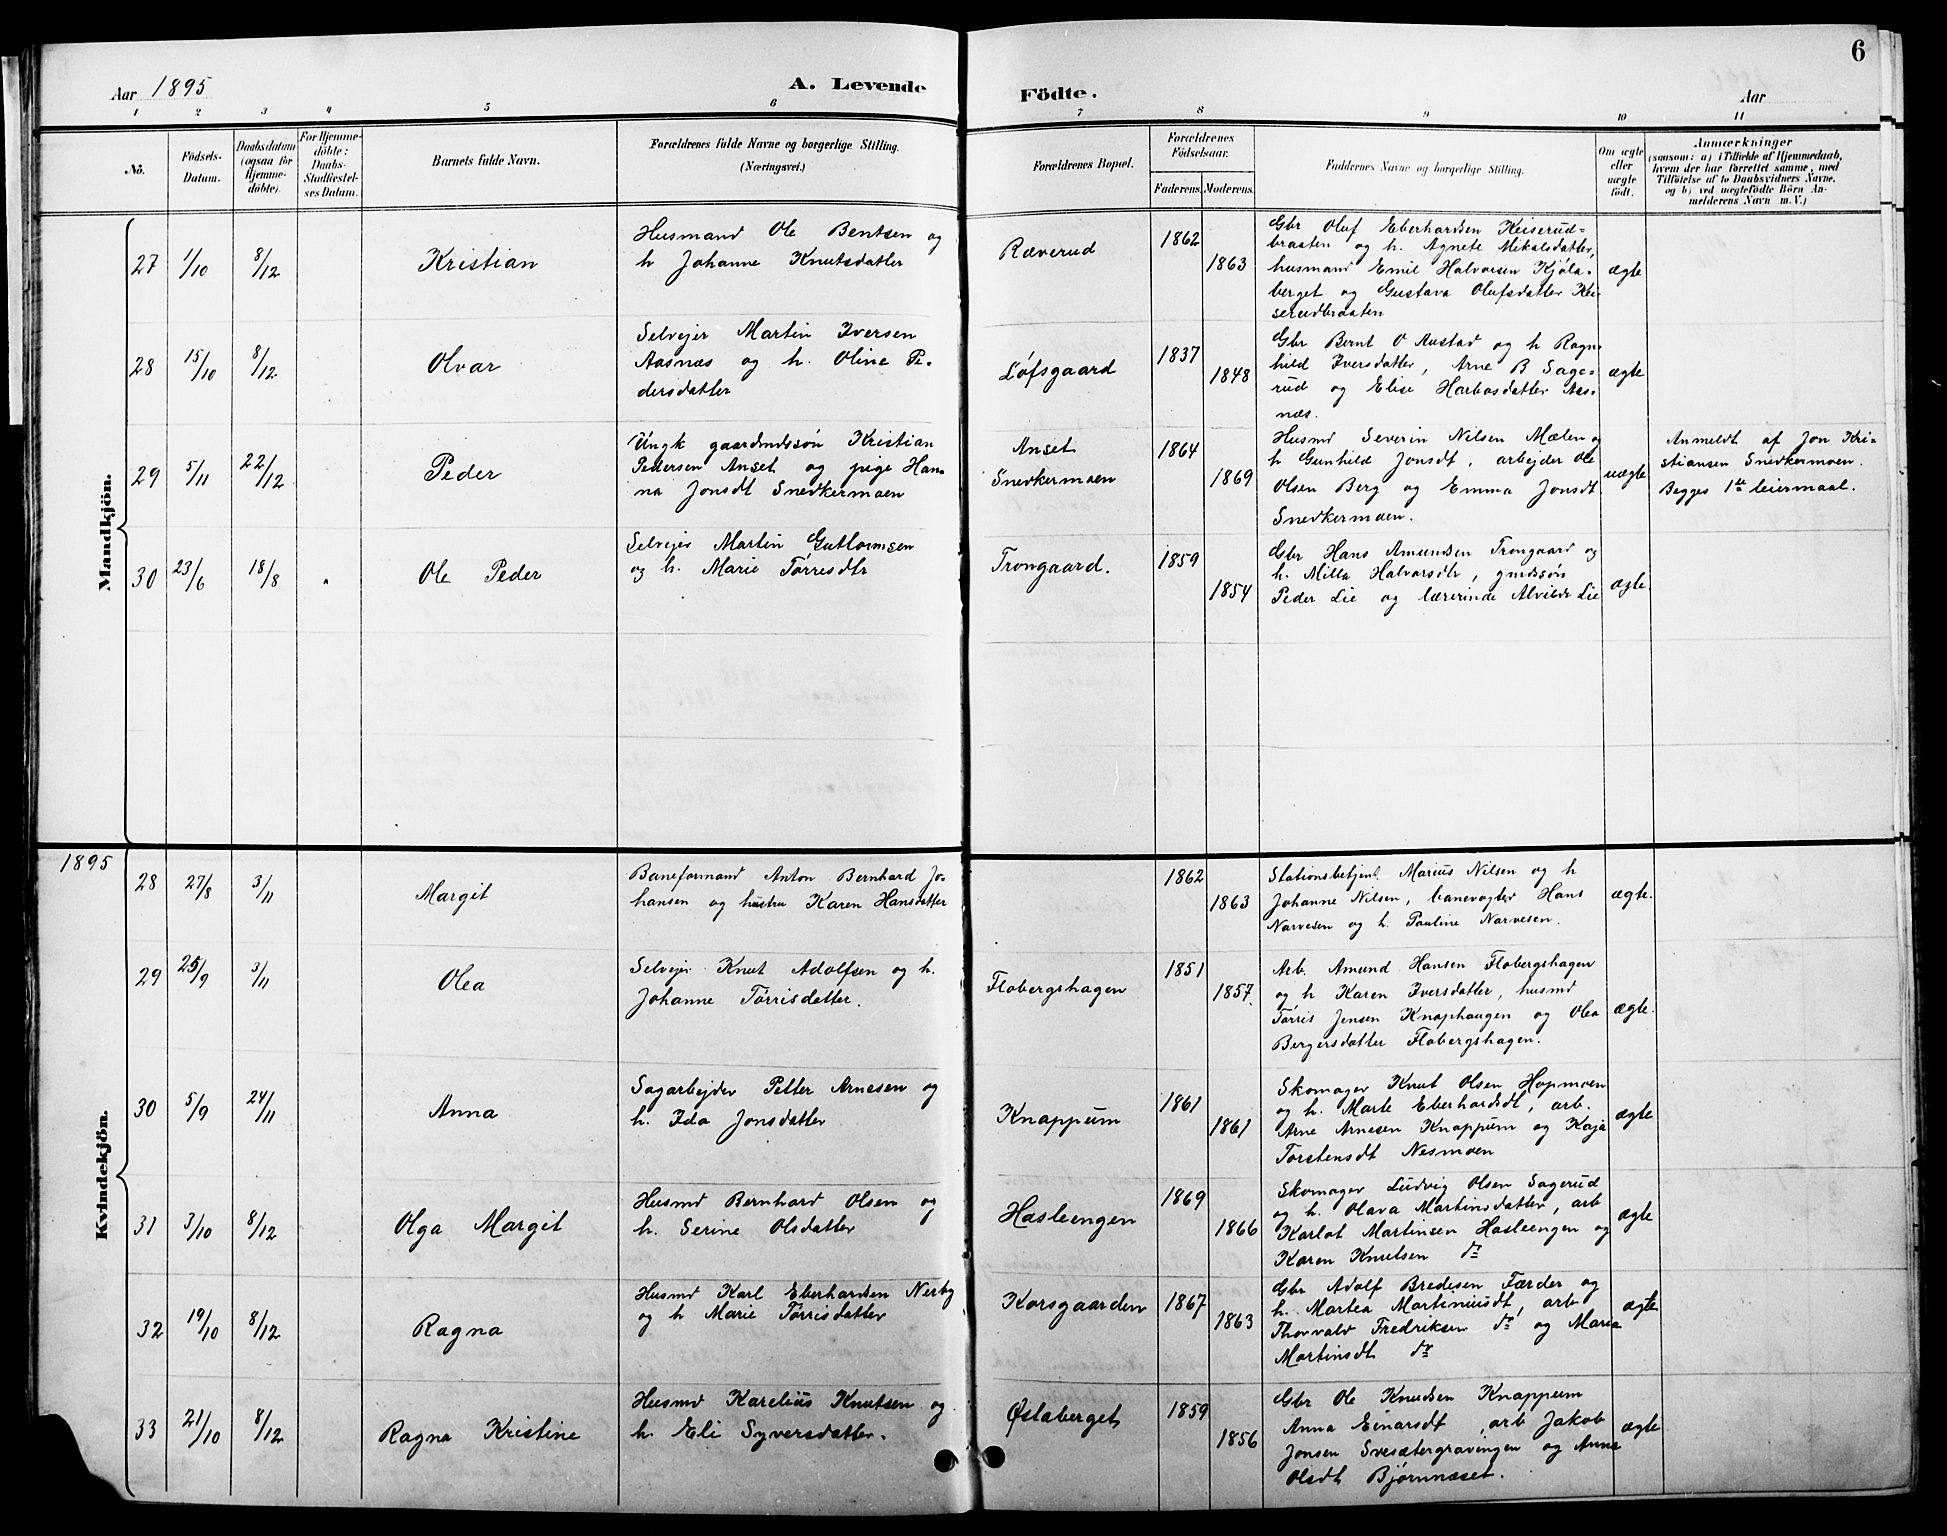 6
Aar 1895
A. Levende
Födte.
Aar
1 2 3 4 5 6 7 8 9 10 11
No.
Födsels-
Datum.
Daabsdatum
(ogsaa for
Hjemme-
döbte).
For Hjemme-
döbte:
Daabs-
Stadfæstel-
ses Datum.
Barnets fulde Navn.
Forældrenes fulde Navne og borgerlige Stilling.
(Næringsvei.)
Forældrenes Bopæl.
Forældrenes
Födselsaar.
Faderens. Moderens.
Faddernes Navne og borgerlige Stilling.
Om ægte
eller
uægte
födt.
Anmærkninger
(saasom: a) i Tilfælde af Hjemmedaab,
hvem der har forrettet samme, med
Tilföielse af to Daabsvidners Navne,
og b) ved uægtefödte Börn An-
melderens Navn m. V.)
Mandkjön.
27 1/10 8/12 Kristian
Husmand Ole Bentsen og
h Johanne Knutsdatter
Ræverud
1862
1863
Gbr Oluf Eberhardsen Keiserud-
braaten og h. Agnete Mikalsdatter,
husmand Emil Halvorsen Kjøla-
berget og Gustava Olufsdatter Kei-
serudbraaten
ægte
28 15/10 8/12 Olvar
Selvejer Martin Iversen
Aasnæs og h. Oline Pe-
dersdatter
Løfsgaard
1837
1848
Gbr Bernt O Austad og h Ragn-
hild Iversdatter, Arne B Sage-
rud og Elise Harbosdatter Aas-
næs.
ægte
29 5/11 22/12 Peder
Ungk gaardmdssøn Kristian
Pedersen Anset og pige Han-
na Jonsdt Snedkermoen
Anset
Snedkermoen
1864
1869
Husmd Severin Nilsen Mælen og
h Gunhild Jonsdt, arbejder Ole
Olsen Berg og Emma Jonsdt
Snedkermoen.
uægte
Anmeldt af Jon Kri-
stiansen Snedkermoen.
Begges 1ste leiermaal.
30 23/6 18/8 Ole Peder
Selvejer Martin Guttormsen
og h. Marie Tørrisdtr
Trongaard.
1859
1854
Gbr Hans Amundsen Trongaard og
h. Milla Halvorsdtr, gmdssøn
Peder Lie og lærerinde Alvilde Lie
ægte.
1895
Kvindekjön.
28 27/8 3/11 Margit
Baneformand Anton Bernhard Jo-
hansen og hustru Karen Hansdatter
1862
1863
Stationsbetjent Marius Nilsen og h
Johanne Nilsen, banevogter Hans
Narvesen og h. Pauline Narvesen.
ægte.
29 25/9 3/11 Olea
Selvejer Knut Adolfsen og h.
Johanne Tørrisdatter.
Flobergshagen
1851
1857.
Arb. Amund Hansen Flobergshagen
og h Karen Iversdatter, husmd
Tørris Jensen Knaphaugen og Olea
Bergersdatter Flobergshagen.
ægte.
30 5/9 24/11 Anna
Sagarbejder Petter Arnesen og
h. Ida Jonsdatter
Knappum
1861
1861
Skomager Knut Olsen Hopmoen
og h. Marte Eberhardsdt, arb.
Arne Arnesen Knappum og Kaja
Torstensdt Nesmoen
ægte
31 3/10 8/12 Olga Margit
Husmd Bernhard Olsen og
h. Serine Olsdatter
Hasleengen
1869
1866
Skomager Ludvig Olsen Sagerud
og h. Olava Martinsdatter, arb
Karlot Martinsen Hasleengen og
Karen Knutsen do
ægte
32 19/10 8/12 Ragna
Husmd Karl Eberhardsen Nerby
og h Marie Tørrisdatter
Korsgaarden
1867
1863
Gbr Adolf Bredesen Færder og
h. Martea Martiniusdt, arb
Thorvald Fredriksen do og Maria
Martinsdt do
ægte
33 21/10 8/12 Ragna Kristine
Husmd Karelius Knutsen og
h. Eli Syversdatter.
Østaberget
1859
1856
Gbr Ole Knudsen Knappum
Anna Einarsdt, arb Jakob
Jonsen Svesætergravingen og Anna
Olsdt Bjørnnæset.
ægte